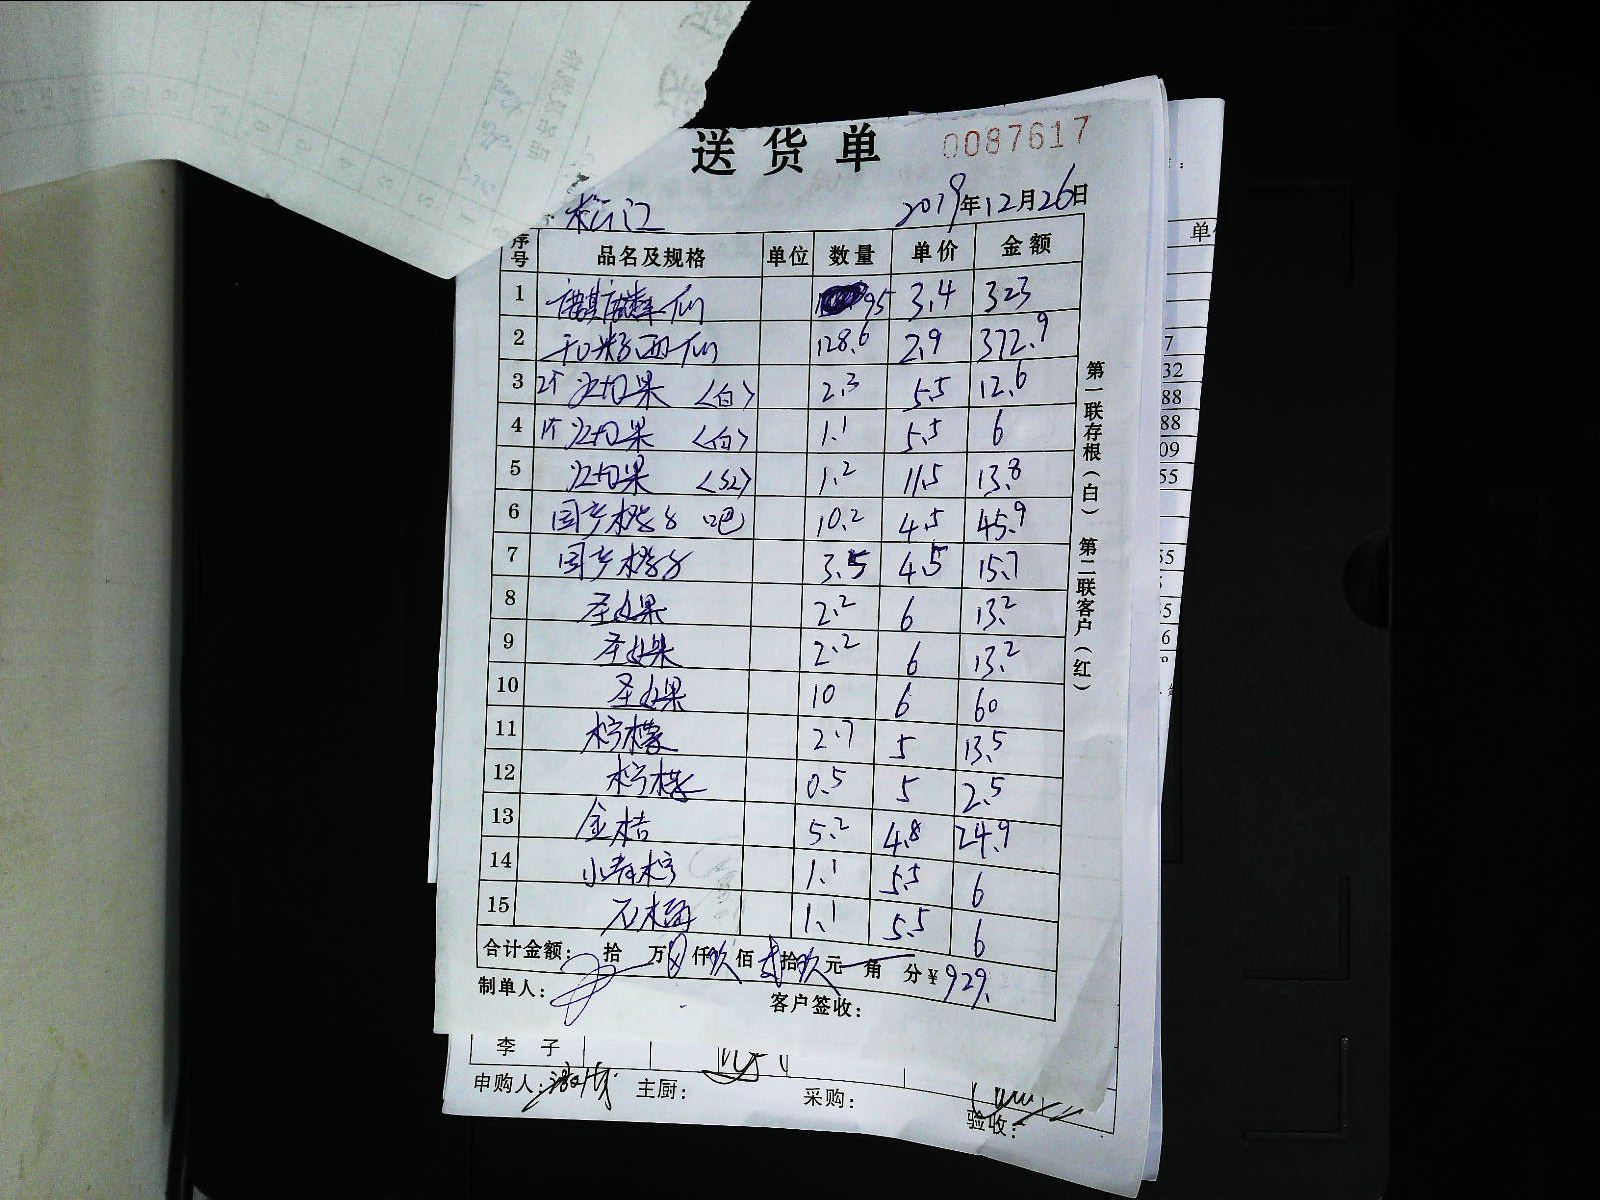 送货单 0087617
松江 2019年12月26日
序号 品名及规格 单位 数量 单价 金额
1 麒麟 95 3.4 323
2 128.6 2.9 372.9
3 2个 火龙果 <白> 2.3 5.5 12.6
4 1个 火龙果 <白> 1.1 5.5 6
5 火龙果 <红> 1.2 11.5 13.8
6 国产橙子 吧 10.2 4.5 45.9
7 国产橙子 3.5 4.5 15.7
8 圣女果 2.2 6 13.2
9 圣女果 2.2 6 13.2
10 圣女果 10 6 60
11 柠檬 2.7 5 13.5
12 柠檬 0.5 5 2.5
13 金桔 5.2 4.8 24.9
14 小青柠 1.1 5.5 6
15 1.1 5.5 6
合计金额: 拾 万 仟玖佰贰拾玖元 角 分¥929.
制单人: 客户签收:
第一联存根(白) 第二联客户(红)
李子
申购人: 主厨: 采购: 验收: